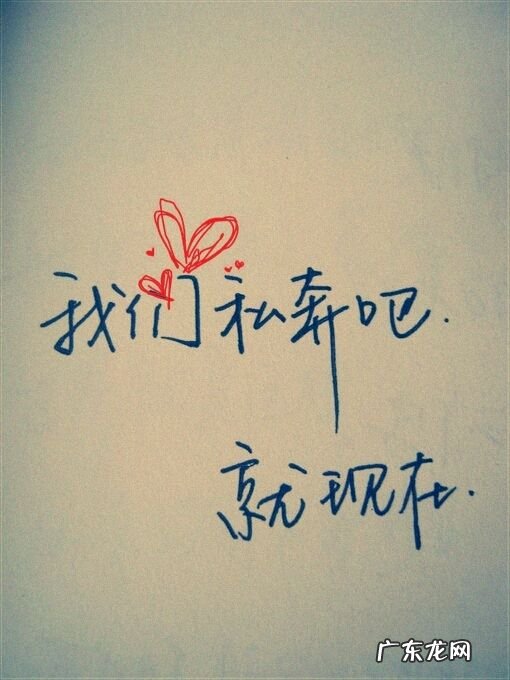 我们私奔吧.
就现在.
广东龙网